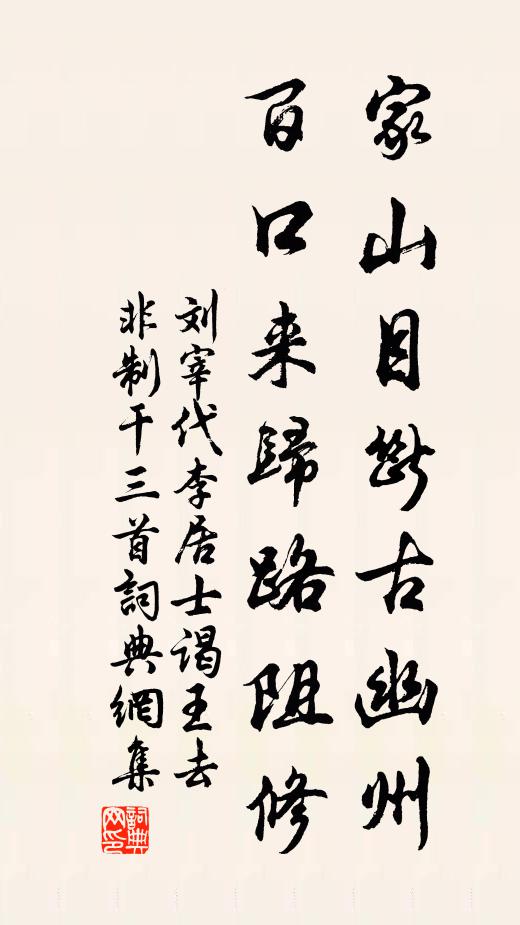 家山目断古幽州
百口来歸路阻修
刘宰代李居士谒王去
非制干三首詞典網集
詞典
网印